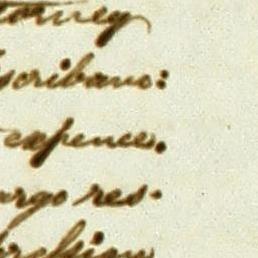 torney
scribano:
expences.
argo res-